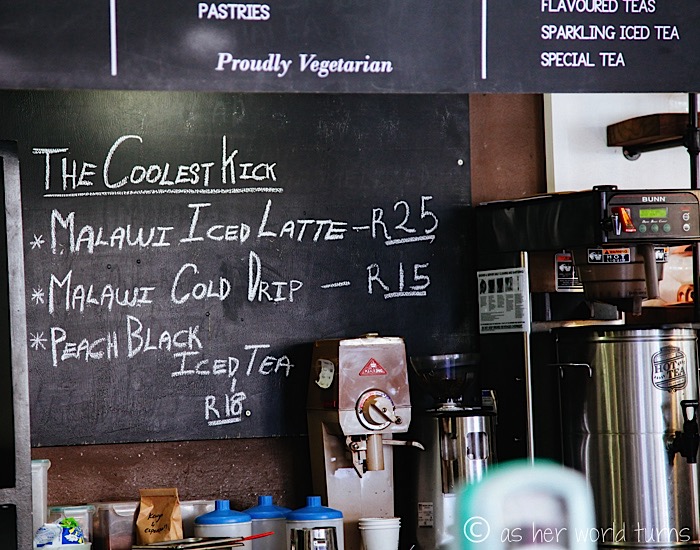 PASTRIES
Proudly Vegetarian
FLAVOURED TEAS
SPARKLING ICED TEA
SPECIAL TEA
THE COOLEST KICK
* MALAWI ICED LATTE - R25
* MALAWI COLD DRIP - R15
* PEACH BLACK
ICED TEA
R18.
BUNN
HOT
HOT
TEA
© as her world turns